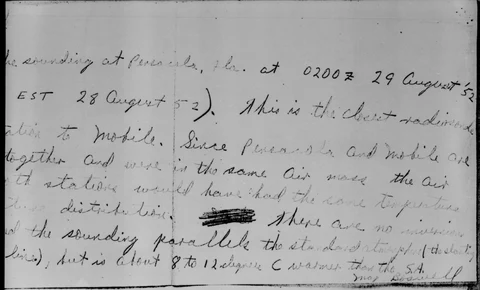 he sounding at Pensacola, Fla. at 0200Z 29 August '52
EST 28 August 52). This is the closest radiosonde
ation to Mobile. Since Pensacola and Mobile are
together and were in the same air mass the air
th stations would have had the same temperature
distribution. there are no inversions
d the sounding parallels the standard atmosphere (the
line), but is about 8 to 12 degrees C warmer than the S.A.